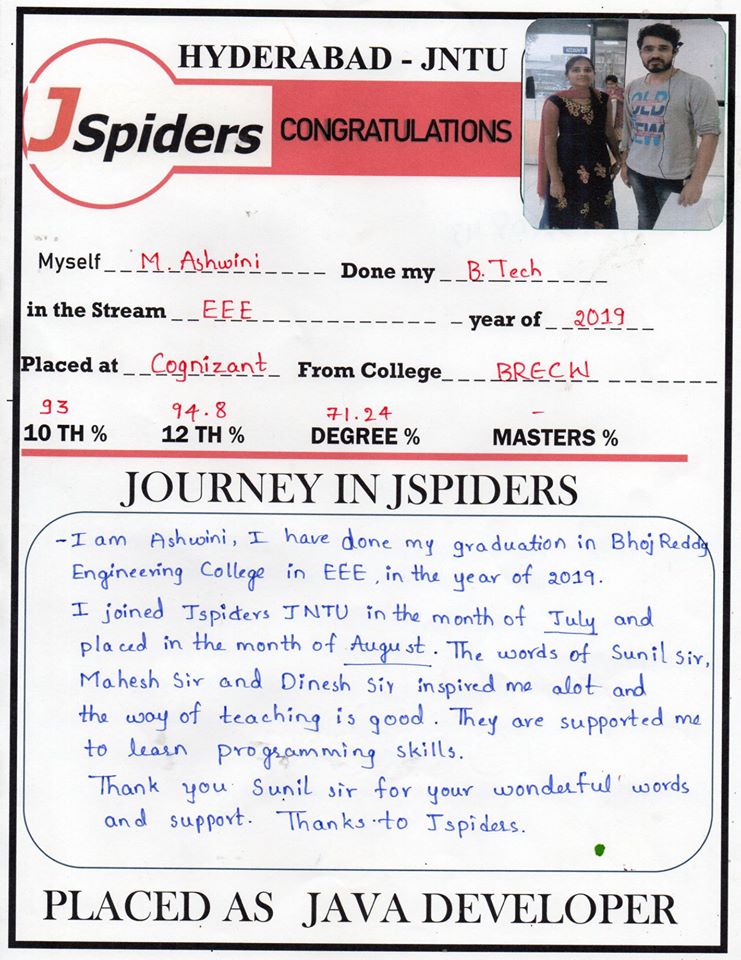 HYDERABAD - JNTU
JSpiders CONGRATULATIONS
OLD
NEW
Myself M. Ashwini Done my B.Tech
in the Stream EEE - year of 2019
Placed at Cognizant From College BRECW
93 94.8 71.24 -
10 TH % 12 TH % DEGREE % MASTERS %
JOURNEY IN JSPIDERS
- I am Ashwini, I have done my graduation in Bhoj Reddy
Engineering College in EEE, in the year of 2019.
I joined Jspiders JNTU in the month of July and
placed in the month of August. The words of Sunil sir,
Mahesh Sir and Dinesh Sir inspired me alot and
the way of teaching is good. They are supported me
to learn programming skills.
Thank you Sunil sir for your wonderful words
and support. Thanks to Jspiders.
PLACED AS JAVA DEVELOPER